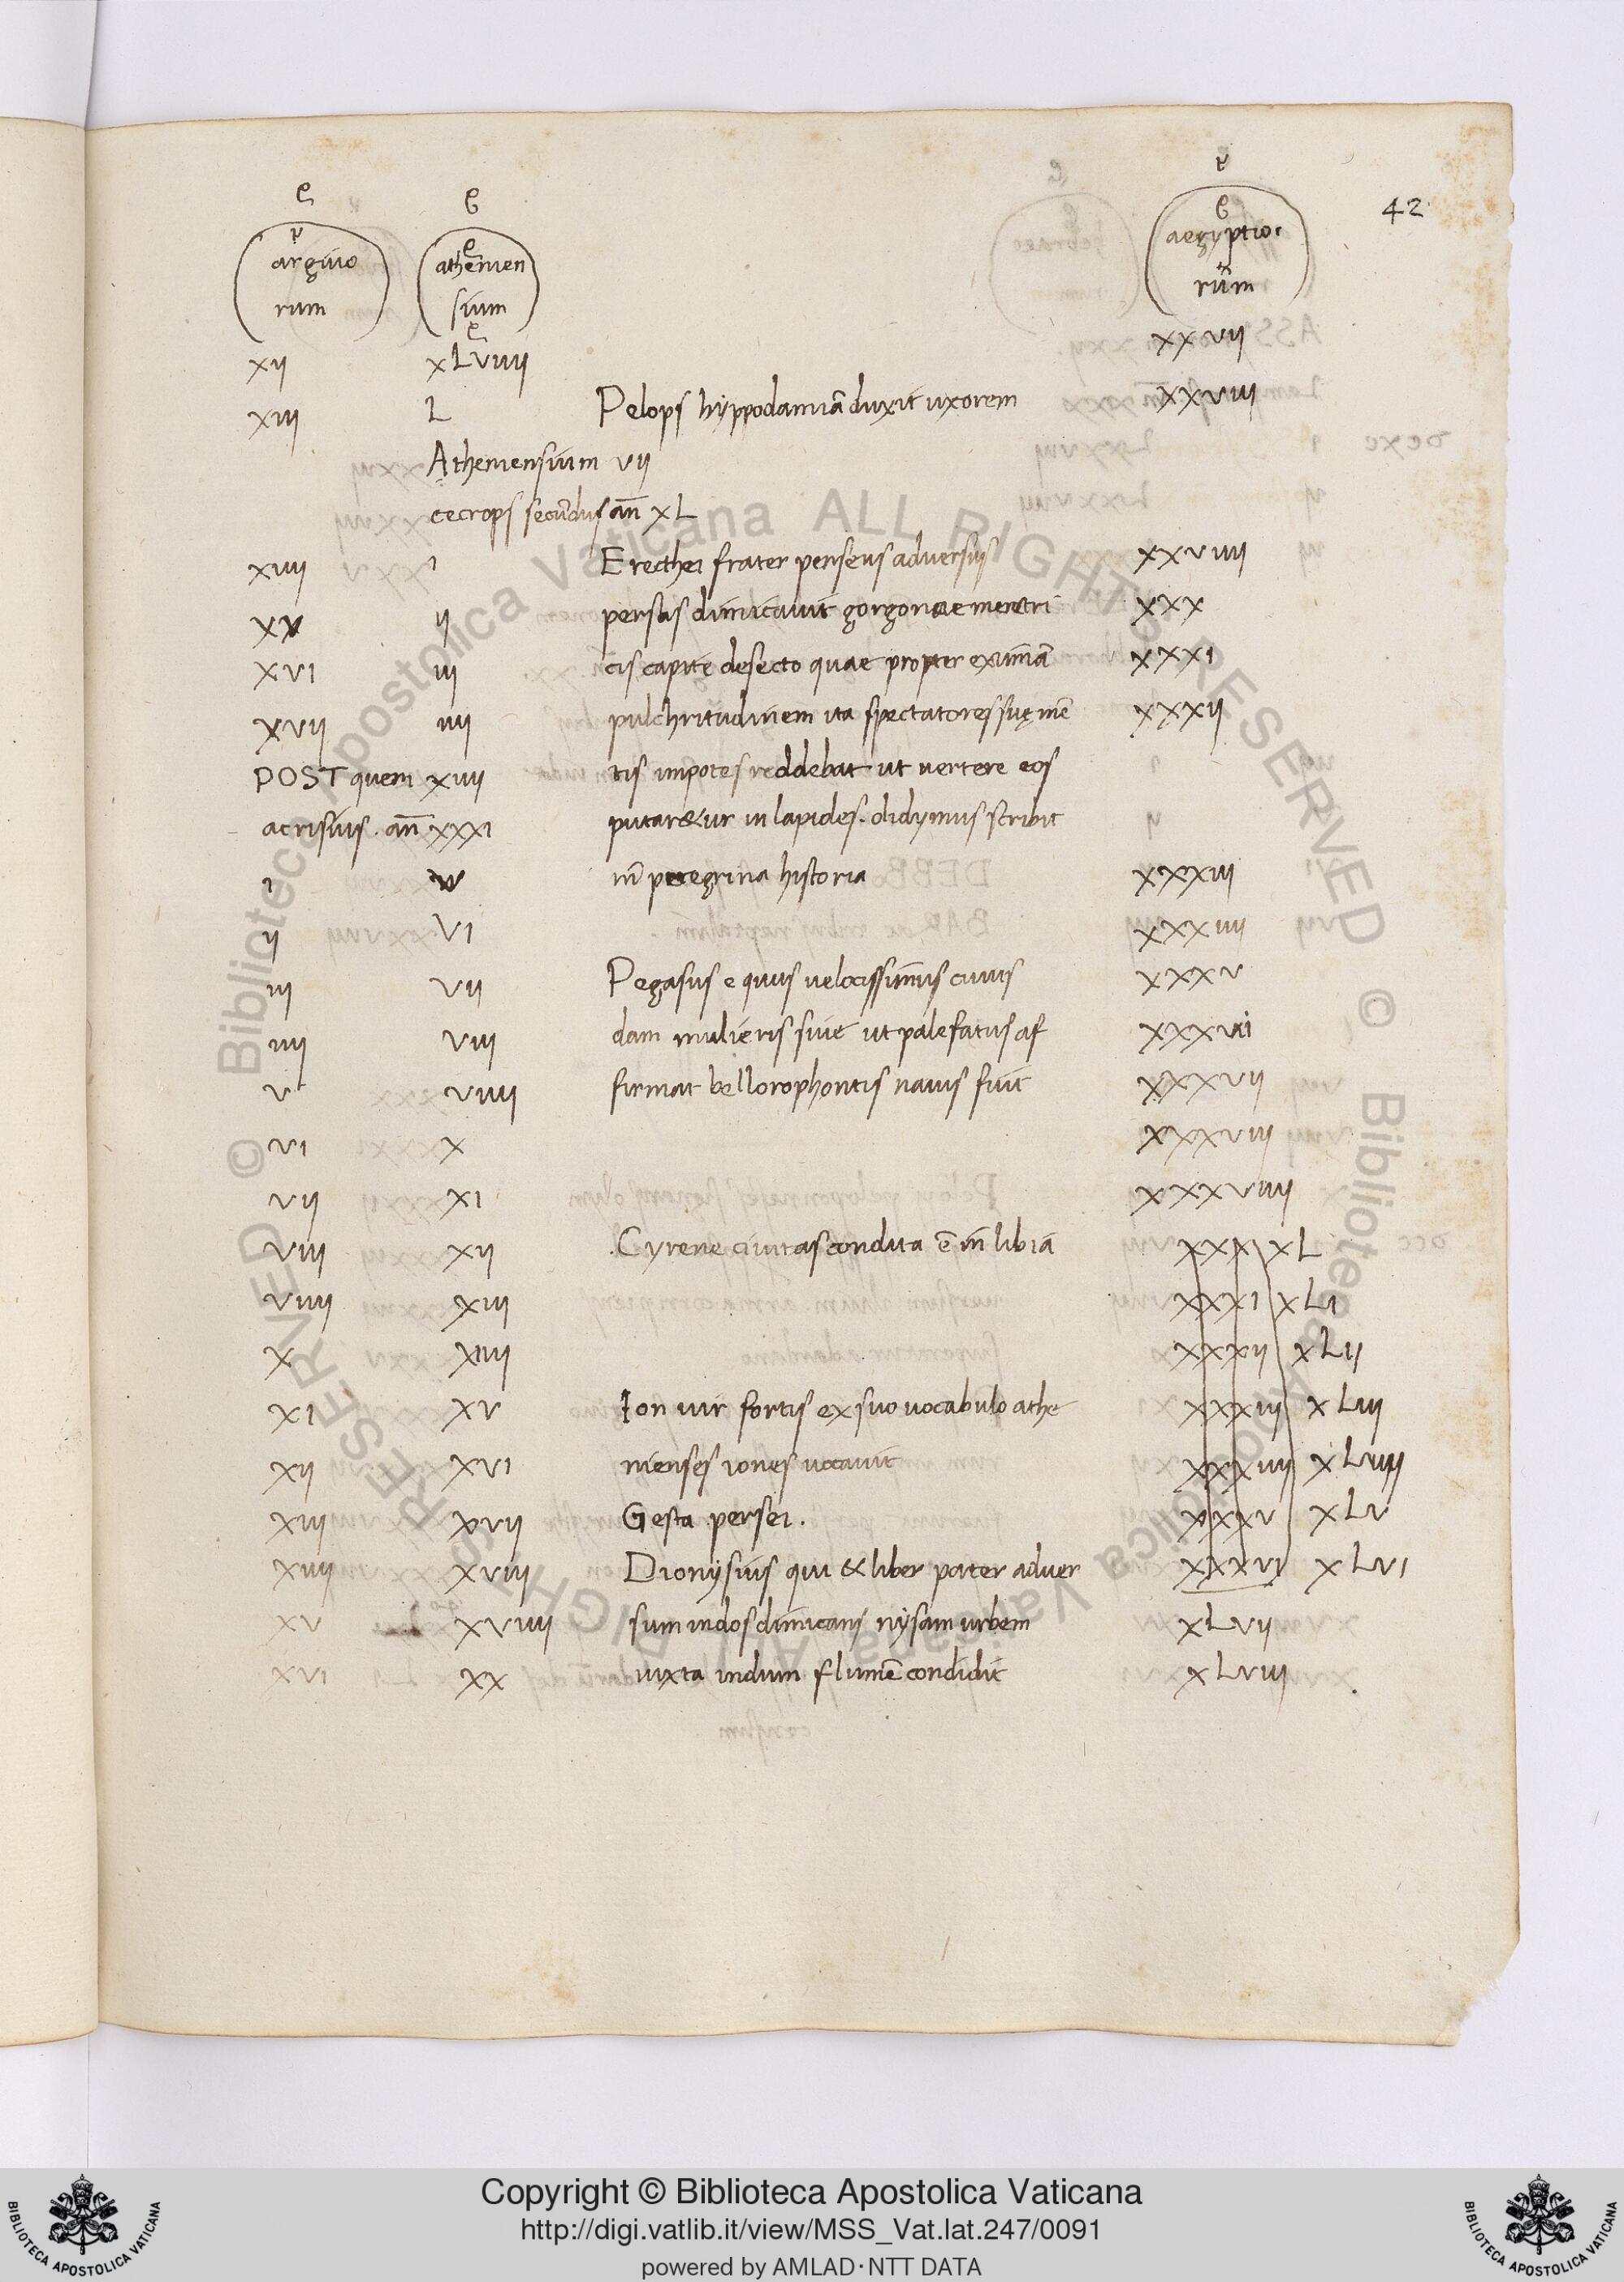 42
argiuo athenien aegyptio
rum sium rum
xxvij
xij xLviiij
xiij L Pelops hyppodamiā duxit uxorem xxviij
Atheniensium vij
cecrops secūdus añ xL
xiiij i Erecthei frater perseus aduersus xxviiij
xv ij persas dimicauit gorgonae meretri xxx
xvi iij cis capite desecto quae propter eximiā xxxi
xvij iiij pulchritudinem ita spectatores suę mē xxxij
POST quem xiiij tis impotes reddebat ut uertere eos
acrisius. añ xxxi putar&ur in lapides. didymus scribit
i v in peregrina historia xxxiij
ij vi xxxiiij
iij vij Pegasus equus uelocissimus cuius xxxv
iiij viij dam mulieris fuit ut palefatus af xxxvi
v viiij firmat bellorophontis nauis fuit xxxvij
vi x xxxviij
vij xi xxxviiij
viij xij Cyrene ciuitas condita ē in libia xxx xL
viiij xiij xxxi xLi
x xiiij xxxij xLij
xi xv Ion uir fortis ex suo uocabulo athe xxxiij xLiij
xij xvi nienses iones uocauit xxxiiij xLiiij
xiij xvij Gesta persei. xxxv xLv
xiiij xviij Dionysius qui & liber pater aduer xxxvi xLvi
xv xviiij sum indos dimicans nysam urbem xLvij
xvi xx iuxta indum flumē condidit xLviij
Copyright © Biblioteca Apostolica Vaticana
http://digi.vatlib.it/view/MSS_Vat.lat.247/0091
powered by AMLAD·NTT DATA
BIBLIOTECA APOSTOLICA VATICANA
BIBLIOTECA APOSTOLICA VATICANA
© Biblioteca Apostolica Vaticana ALL RIGHTS RESERVED
© Biblioteca Apostolica Vaticana ALL RIGHTS RESERVED